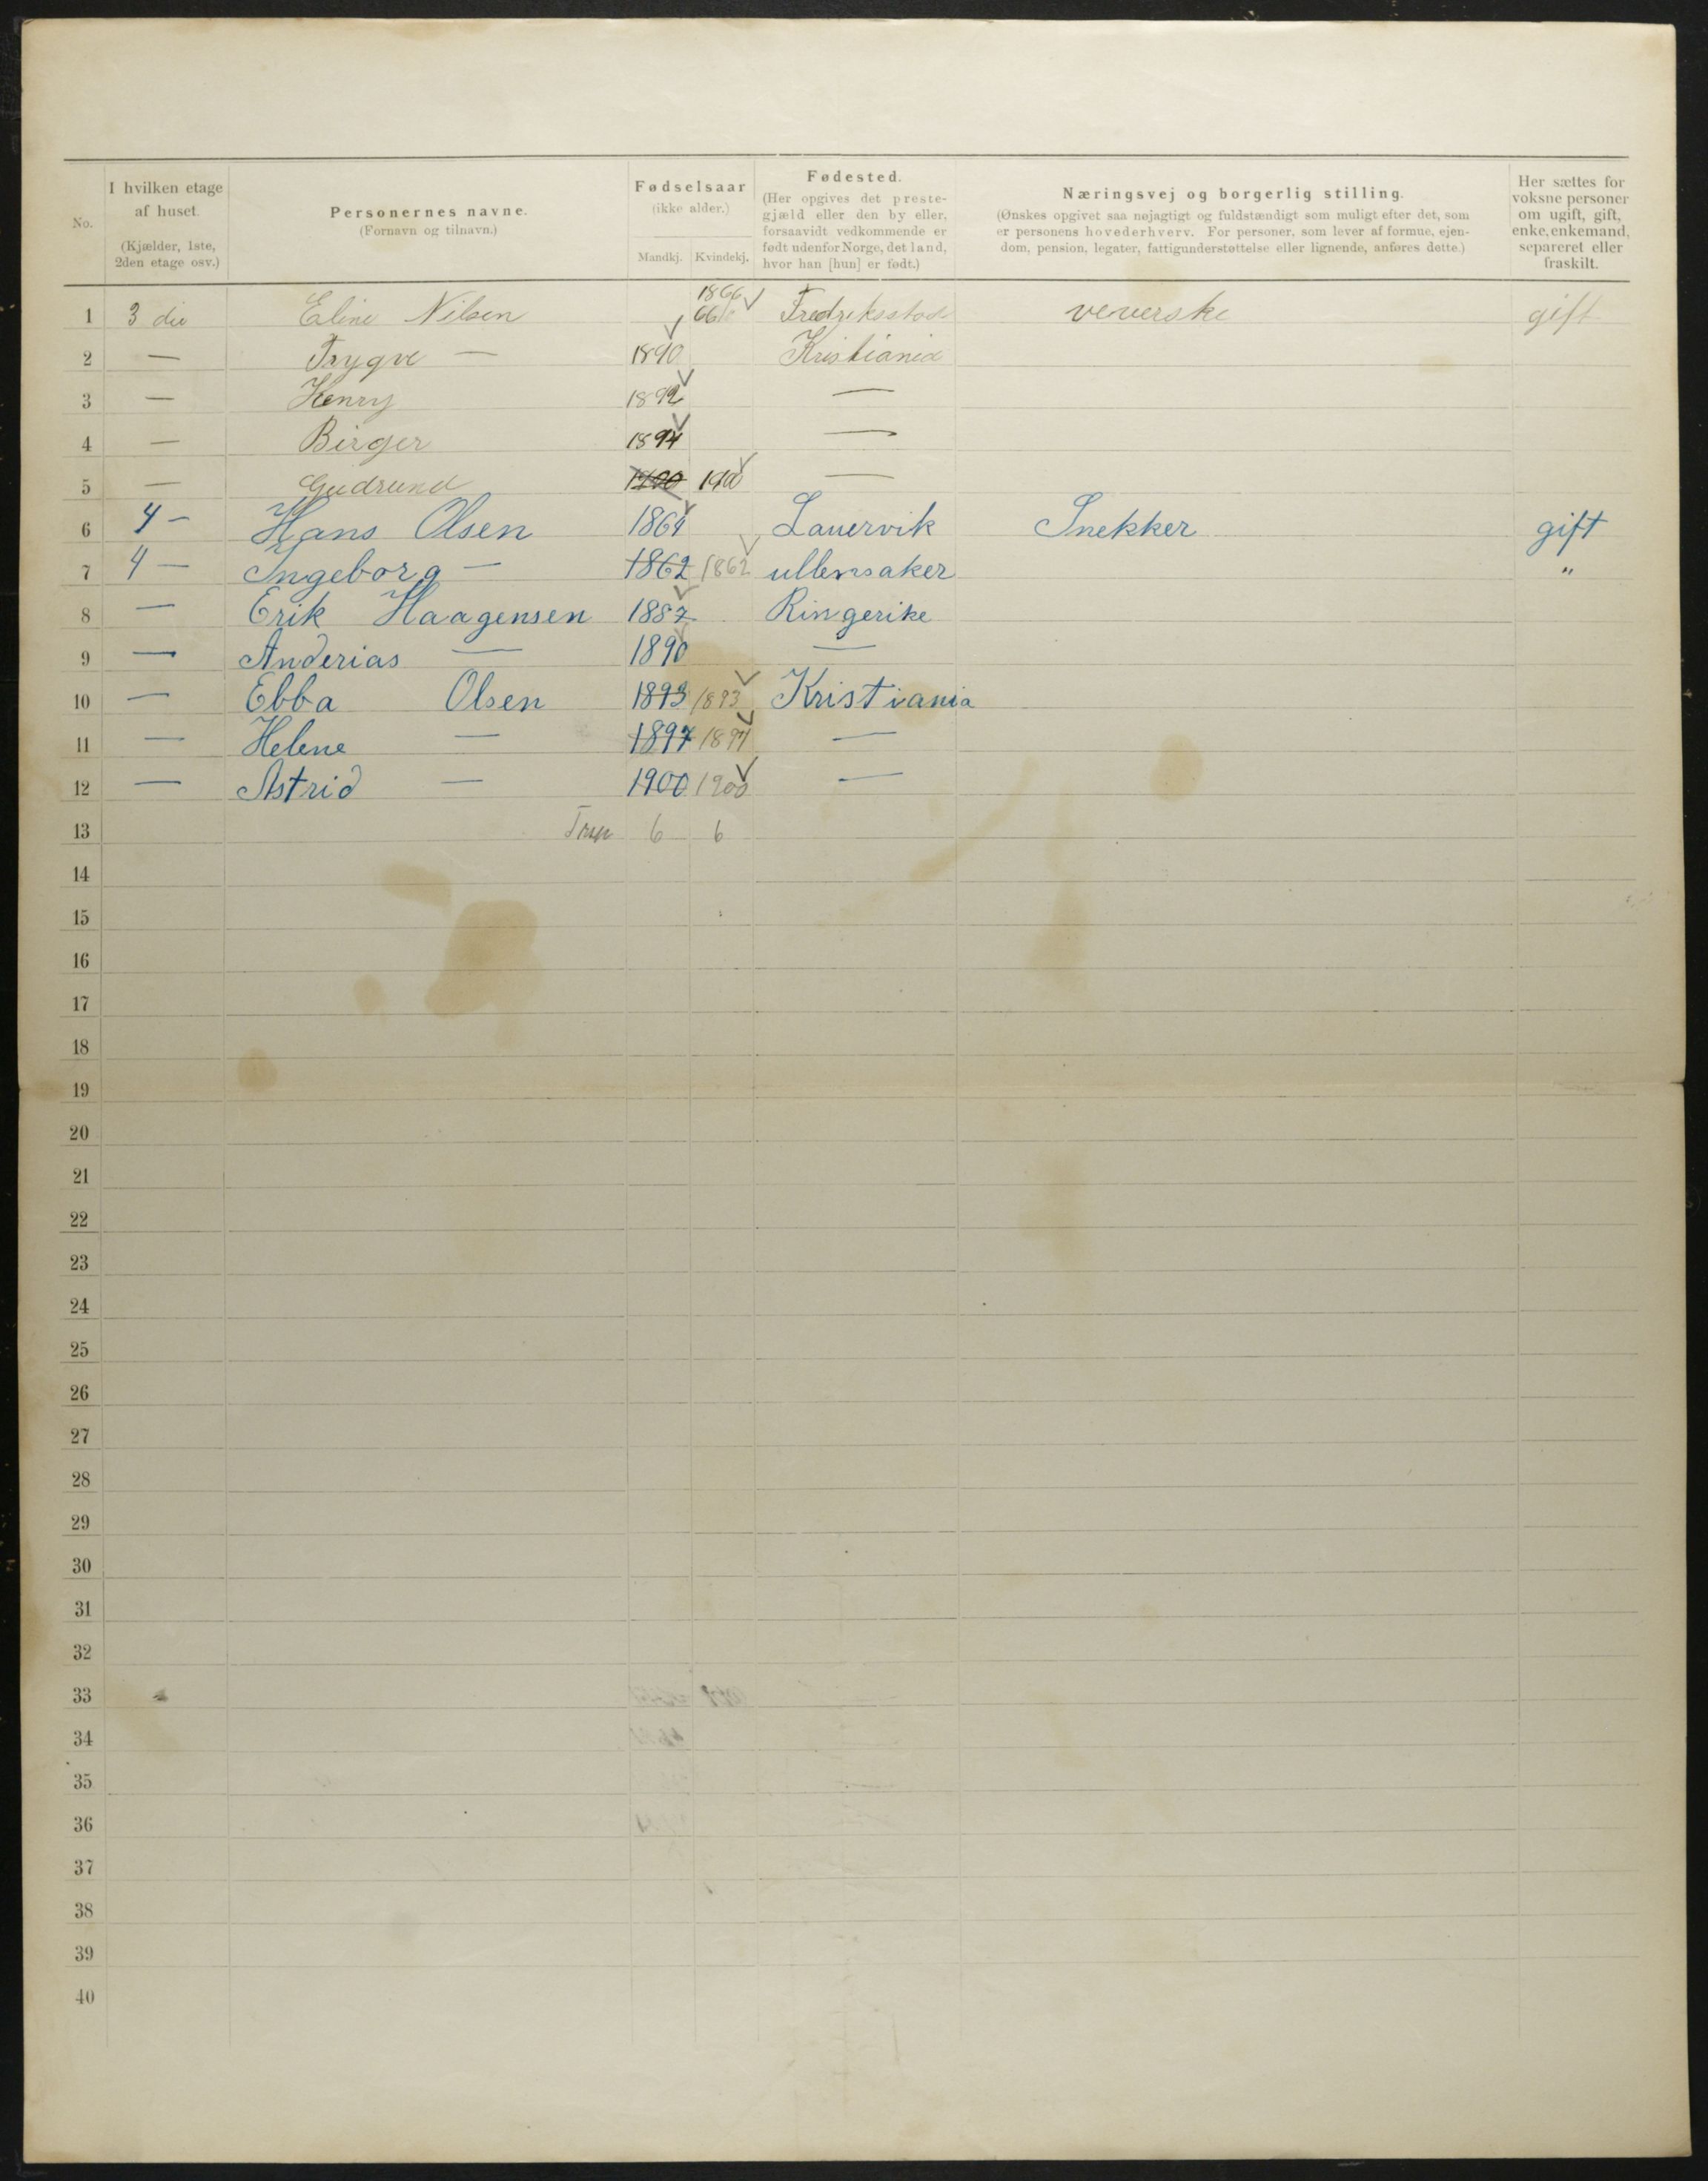 No. I hvilken etage af huset. (Kjælder, 1ste, 2den etage osv.) Personernes navne. (Fornavn og tilnavn.) Fødselsaar (ikke alder.) Mandkj. Kvindekj. Fødested. (Her opgives det prestegjæld eller den by eller, forsaavidt vedkommende er født udenfor Norge, det land, hvor han [hun] er født.) Næringsvej og borgerlig stilling. (Ønskes opgivet saa nøjagtigt og fuldstændigt som muligt efter det, som er personens hovederhverv. For personer, som lever af formue, ejendom, pension, legater, fattigunderstøttelse eller lignende, anføres dette.) Her sættes for voksne personer om ugift, gift, enke, enkemand, separeret eller fraskilt.
1 3 die Eline Nilsen 1866 66 Fredriksstad veverske gift
2 — Trygve — 1890 Kristiania
3 — Henry 1892 —
4 — Birger 1894 —
5 — Gudrund 1900 1900 —
6 4 — Hans Olsen 1864 Lauervik Snekker gift
7 4 — Ingeborg — 1862 1862 ullensaker "
8 — Erik Haagensen 1887 Ringerike
9 — Anderias — 1890 —
10 — Ebba Olsen 1893 1893 Kristiania
11 — Helene — 1897 1897 —
12 — Astrid — 1900 1900 —
13 6 6
14
15
16
17
18
19
20
21
22
23
24
25
26
27
28
29
30
31
32
33
34
35
36
37
38
39
40